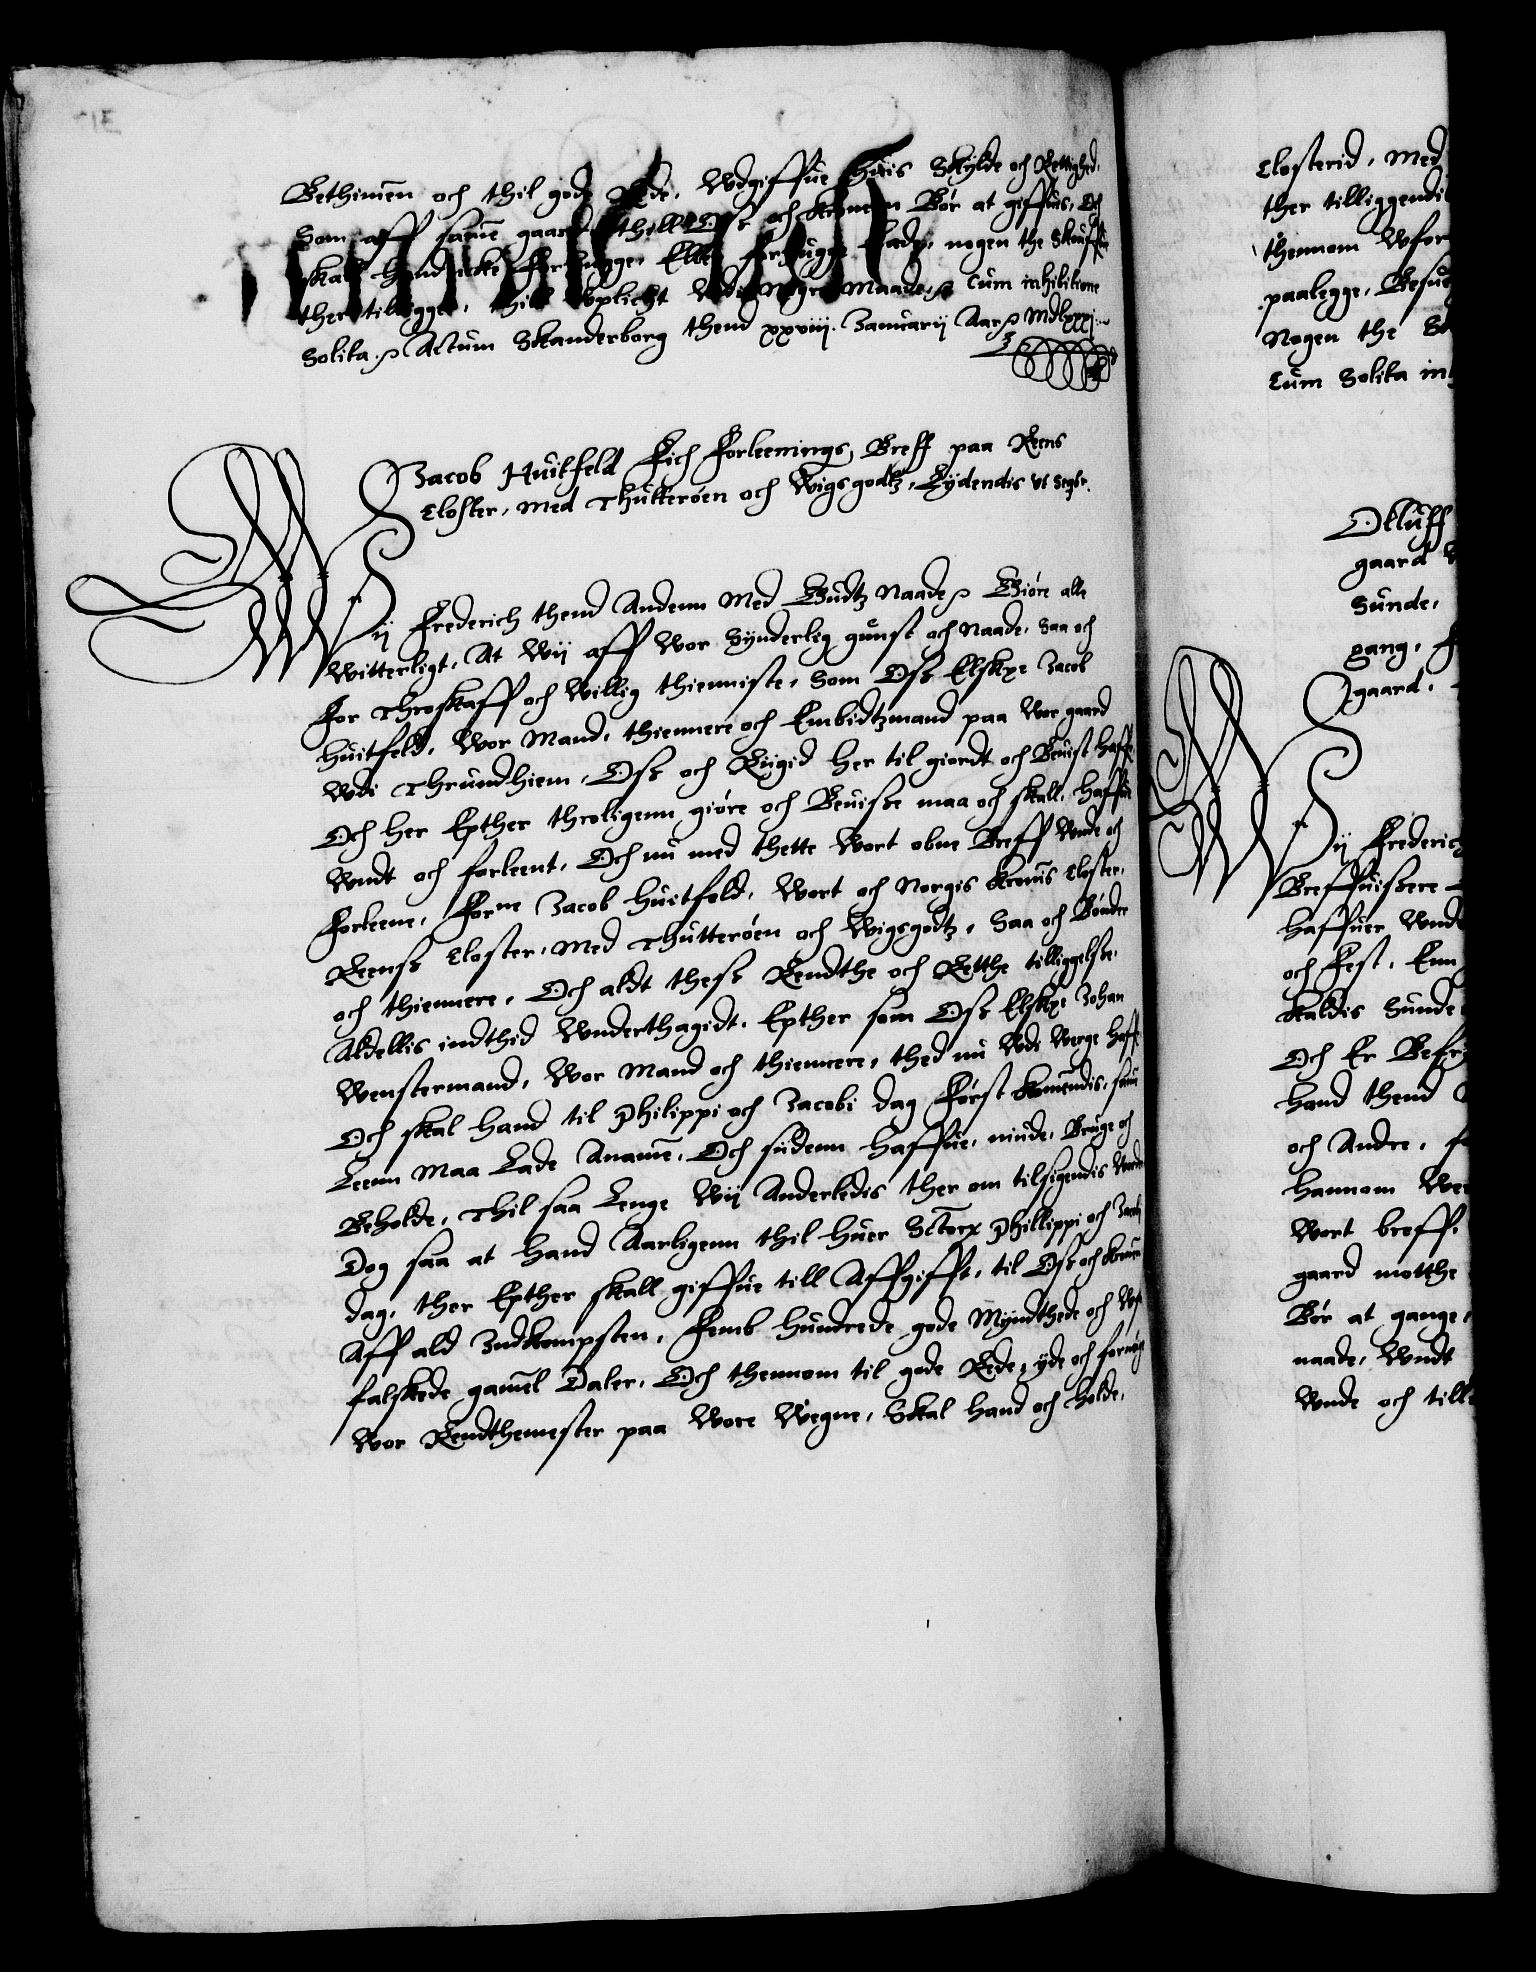 Bethimen och thil gode Rede, Wdgiffue huis Skylde och Rettighed,
Som aff samme gaard thill Oss och kronen Bør at giffuis, Och
skall hand icke forhugge, Eller forhugge lade, nogen the Skouffue
ther tilligger, thill Wplicht Wdi Nogre Maade, Cum inhibitione
Solita. Actum Skanderborg thend xxviij. Januarij Aar Mdlxxxj.
Jacob Huitfeld Fich Forleenings Breff paa Reens
Closter, Med Thutterøen och Wigsgodtz, Lydendis Vt Seqtr.
Wij Frederich thend Andenn Med Gudtz Naade Giøre alle
Witterligt, At Wij aff Wor Synderlig gunst och Naade, Saa och
For Throskaff och Willig thienniste, Som Oss Elskxe Jacob
Huitfeld, Wor Mand, thiennere och Embidtzmand paa Wor gaard
Wdi Thrundhiem, Oss och Riigid her til giordt och Beuist haffr
Och her Epther throligenn giøre och Beuisse maa och skall, Haffue
Wndt och forleent, Och nu med thette Wort obne Breff Wnde och
Forleene, Forne Jacob Huitfeld, Wort och Norgis Kronis Closter,
Reenss Closter, Med Thutterøen och Wigsgodtz, Saa och Bønder
och thiennere, Och aldt thess Rendthe och Retthe tilliggelsse,
Aldellis indthid Wnderthagidt, Epther som Oss Elskxe Johan
Wenstermand, Wor Mand och thiennere, thed nu Wdi Werge haffr
Och skal hand til Philippi och Jacobi dag Først komendis, samme
Leenn Maa Lade Anamme, Och sidenn Haffue, niude, Bruge och
Beholde, Thil saa Lenge Wij Anderledis ther om tilsigendis Worder
Dog saa at hand Aarligenn thil huer Sctorx Phillippi och Jacobi
dag, ther Epther skall giffue till Affgifft, til Oss och kronen
Aff ald Indkompsten, Femb hundrede gode Myndthede och Wfr
falskede gamel Daler, Och thennom til gode Rede, yde och fornøge
Wor Rendthemester paa Wore Wegne, Skal hand och holde,
Closterid, Med
ther tilliggendi
thennom Wfor
paalegge, Besue
Nogen the Sk
Cum Solita in
Olluff
gaard
Sunde,
gang,
gaard,
Wij Frederich
Breffuissere
haffuer Wndt
och Fest, Enn
kaldis Sunde
Och Er Befry
hand thend
och Andre,
hannom Wer
Wort breffr
gaard motthe
Bør at gange,
naade, Wndt
Wnde och till